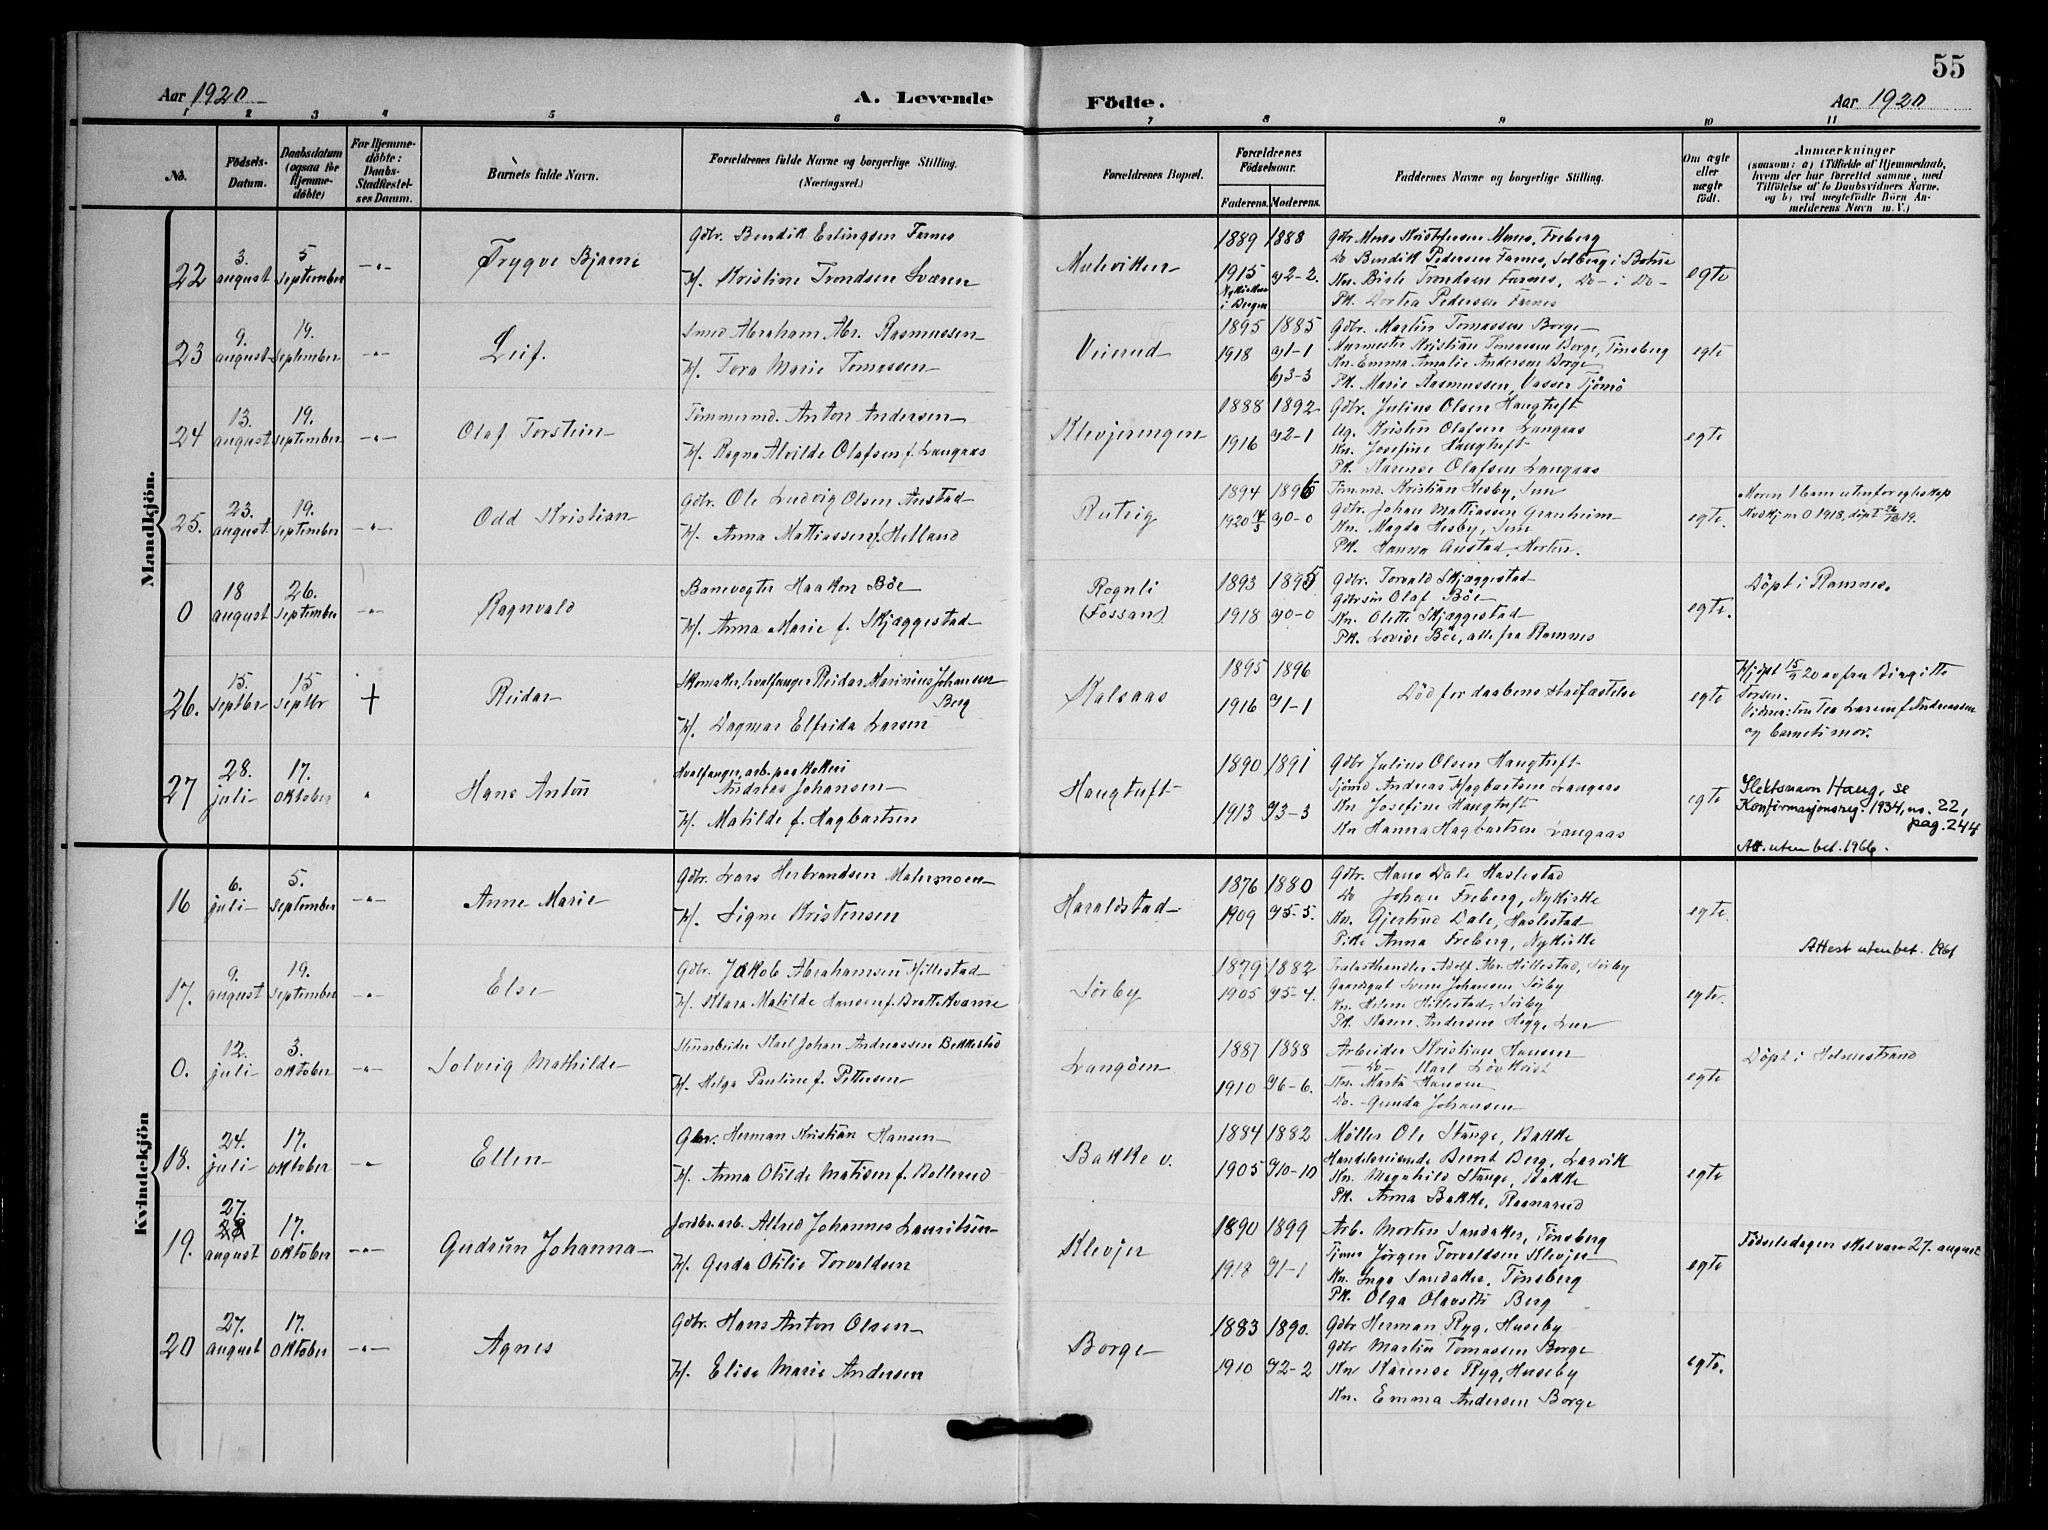 55
Aar 1920
A. Levende
Födte.
Aar 1920
1 2 3 4 5 6 7 8 9 10 11
No.
Födsels-
Datum.
Daabsdatum
(ogsaa for
Hjemme-
döbte)
For Hjemme-
döbte:
Daabs-
Stadfæstel-
ses Datum.
Barnets fulde Navn.
Forældrenes fulde Navne og borgerlige Stilling.
(Næringsvei.)
Forældrenes Bopæl.
Forældrenes
Födselsaar.
Faderens. Moderens.
Faddernes Navne og borgerlige Stilling.
Om ægte
eller
uægte
född.
Anmærkninger
(saasom: a) i Tilfælde af Hjemmedaab,
hvem der har forrettet samme, med
Tilföielse af to Daabsvidners Navne.
og b) ved uægtefödte Börn An-
melderens Navn m. V.)
Mandkjön.
22
3. august
5 september
-"-
Trygve Bjarne
Gdbr. Bendik Erlingsen Farnes
H. Kristine Trondsen Sværen
Mulevikken
1889 1888
1915 g2-2.
Nykirken
i Bergen
Gdbr Mons Kristofersen Mones, Freberg
Do Bendik Pedersen Farnes, Solberg i Botne
Kn. Birte Trondsen Farnes, Do- i Do-
Pk. Dortea Pedersen Farnes
egte
23
9. august
19. september
-"-
Leif.
Smed Abraham Abr. Rasmussen
H. Tora Marie Tomassen
Veierud
1895 1885
1918 a)1-1
b)3-3
Gdbr. Martin Tomassen Borge
Murmester Kristian Tomassen Borge, Tönsberg
Kn. Emma Amalie Andersen Borge
Pk. Marie Rasmussen, Vasser Tjömö
egte
24
13. august
19. september
-"-
Olaf Torstein
Tömmermd. Anton Andersen
H. Ragna Alvilde Olafsen f. Langaas
Klevjeringen
1888 1892
1916 g2-1
Gdbr. Julius Olsen Haugtuft
Ug. Kristin Olafsen Langaas
Kn. Josefine Haugtuft
Pk. Karense Olafsen Langaas
egte
25.
23. august
19. september
-"-
Odd Kristian
Gdbr. Ole Ludvig Olsen Austad
H. Anna Mattiassen f. Helland
Rutvig
1894 1896
1920 14/3 g0-0
Tömmd. Kristian Hesby, Sem
Gdbr. Johan Mattiassen Granheim
Kn. Magda Hesby, Sem
Pk. Hanna Austad, Horten.
egte.
Moren 1 barn utenfor egteskap
0 1918, döpt 19.
0
18 august
26. september
-"-
Ragnvald
Banevogter Haakon Böe
H. Anna Marie f. Skjæggestad
Rognli
(Fossan)
1893 1895
1918 g0-0
Gdbr. Torvald Skjæggestad
Gdbrsön Olaf Böe
Kn. Olette Skjæggestad
Pk. Lovise Böe, alle fra Ramnes
egte.
Döpt i Ramnes.
26.
15. septbr
15 septbr
+
Reidar
Skomaker, hvalfanger Reidar Marinius Johansen
Berg
H. Dagmar Elfrida Larsen
Kalsaas
1895 1896
1916 g1-1
Död for daabens stadfæstelse
egte
Hjdpt 15/9 20 av fru Birgitte
Torsen.
Vidner: fru Tea Larsen f. Andreassen
og barnets mor.
27
28. juli
17. oktober
"
Hans Anton
Hvalfanger, arb. paa kokeri
Andreas Johansen
H. Matilde f. Hagbartsen
Haugtuft
1890 1891
1913 g3-3
Gdbr Julius Olsen Haugtuft
Sjömd Andreas Hagbartsen Langaas
Kn Josefine Haugtuft
Kn Hanna Hagbartsen Langaas
egte
Slektsnavn Haug, se
Konfirmasjonsreg. 1934, nr. 22,
pag. 244
Att. uten bet. 1966.
Kvindekjön
16
6. juli
5. september
-"-
Anne Marie
Gdbr. Lars Herbrandsen Matermoen
H. Signe Kristensen
Haraldstad
1876 1880
1909 g5-5.
Gdbr. Hans Dale Haslestad
Do Johan Freberg, Nykirke
Kn. Gjertrud Dale, Haslestad
Pike Anna Freberg, Nykirke
egte.
17.
9. august
19. september
-"-
Else
Gdbr. Jakob Abrahamsen Hillestad
H. Klara Matilde Hansen f. Brattekværne
Sörby
1879 1882
1905 g5-4.
Trælasthandler Adolf Abr. Hillestad, Sörby
Gaardsgut Svene Johansen Sörby
Kn. Helene Hillestad, Sörby
Pk. Karen Andersen Hegge, Lur
egte.
Attest uten bet. 1961
0.
12. juli
3. oktober
-"-
Solveig Mathilde
Stenarbeider Karl Johan Andreassen Bekkestad
H. Helga Pauline f. Pettersen
Langöen
1887 1888
1910 g6-6.
Arbeider Kristian Hansen
-Do- Karl Lövkvist
Kn. Marta Hansen
Do. Gunda Johansen
egte
Döpt i Holmestrand
18.
24. juli
17. oktober
-"-
Ellen
Gbr. Herman Kristian Hansen
H. Anna Otilde Matisen f. Bollerud
Bakke v.
1884 1882
1905 g10-10
Möller Ole Stange, Bakke
Handelsreisende Bernt Berg, Larvik
Kn. Magnhild Stange, Bakke
Pk. Anna Bakke, Raanarud
egte
19.
27. august
17. oktober
-"-
Gudrun Johanna
Jordbr. arb. Alfred Johannes Lauritsen
H. Gerda Otilie Torvaldsen
Klevjer
1890 1899
1918 g1-1
Arb. Morten Sandaker, Tönsberg
Tjener Jörgen Torvaldsen Klevjer
Kn. Inga Sandaker, Tönsberg
Pk. Olga Olavsen Berg
egte
Födselsdagen skal være 27. august
20
27. august
17. oktober
-"-
Agnes
Gdbr. Hans Anton Olsen
H. Elise Marie Andersen
Borge
1883 1890.
1910 g2-2
Gdbr Herman Ryg, Huseby
Gdbr Martin Tomassen Borge
Kn Karense Ryg, Huseby
Kn. Emma Andersen Borge
egte.